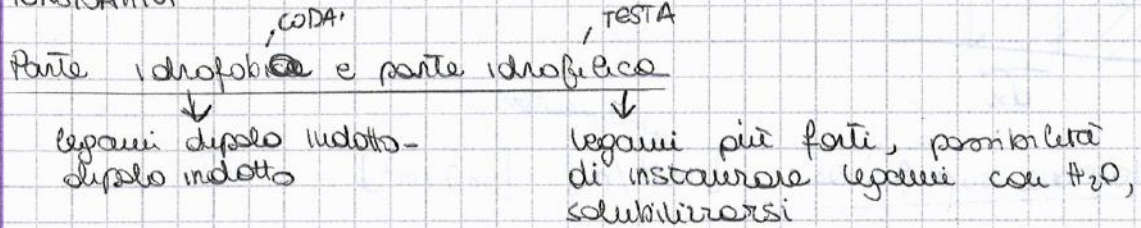 CODA TESTA
Parte idrofobica e parte idrofilica
legami dipolo indotto- legami più forti, possibilità
dipolo indotto di instaurare legami con H₂O,
solubilizzarsi